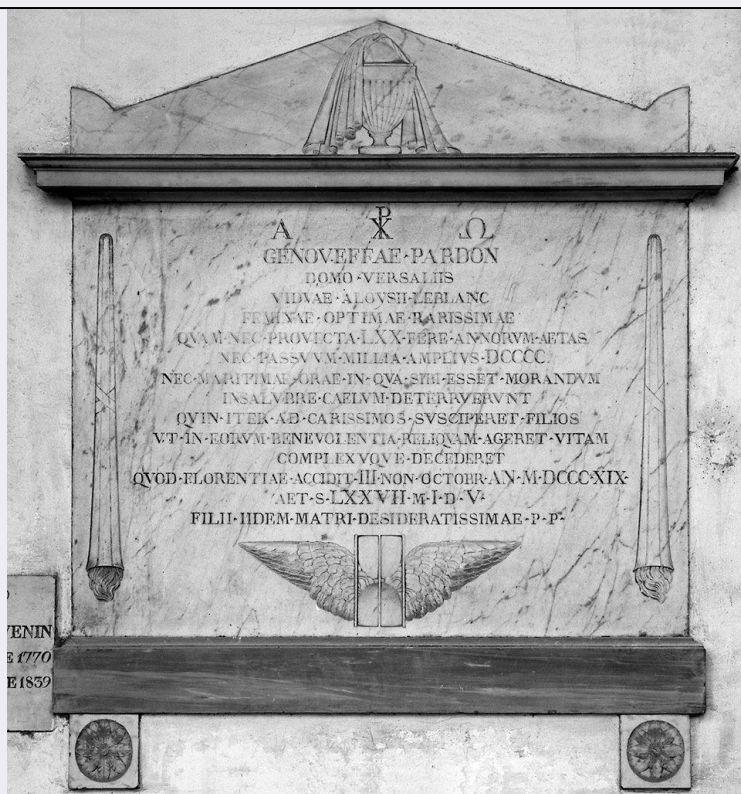 Α ☧ Ω
GENOVEFFAE·PARDON
DOMO·VERSALIIS
VIDVAE·ALOYSII·LEBLANC
FEMINAE·OPTIMAE·RARISSIMAE
QVAM·NEC·PROVECTA·LXX·FERE·ANNORVM·AETAS
NEC·PASSVVM·MILLIA·AMPLIVS·DCCCC
NEC·MARITIMAE·ORAE·IN·QVA·SIBI·ESSET·MORANDVM
INSALVBRE·CAELVM·DETERRVERVNT
QVIN·ITER·AD·CARISSIMOS·SVSCIPERET·FILIOS
VT·IN·EORVM·BENEVOLENTIA·RELIQVAM·AGERET·VITAM
COMPLEXVQVE·DECEDERET
QVOD·FLORENTIAE·ACCIDIT·III·NON·OCTOBR·AN·M·DCCC·XIX·
AET·S·LXXVII·M·I·D·V·
FILII·IIDEM·MATRI·DESIDERATISSIMAE·P·P·
VENIN
E 1770
E 1839